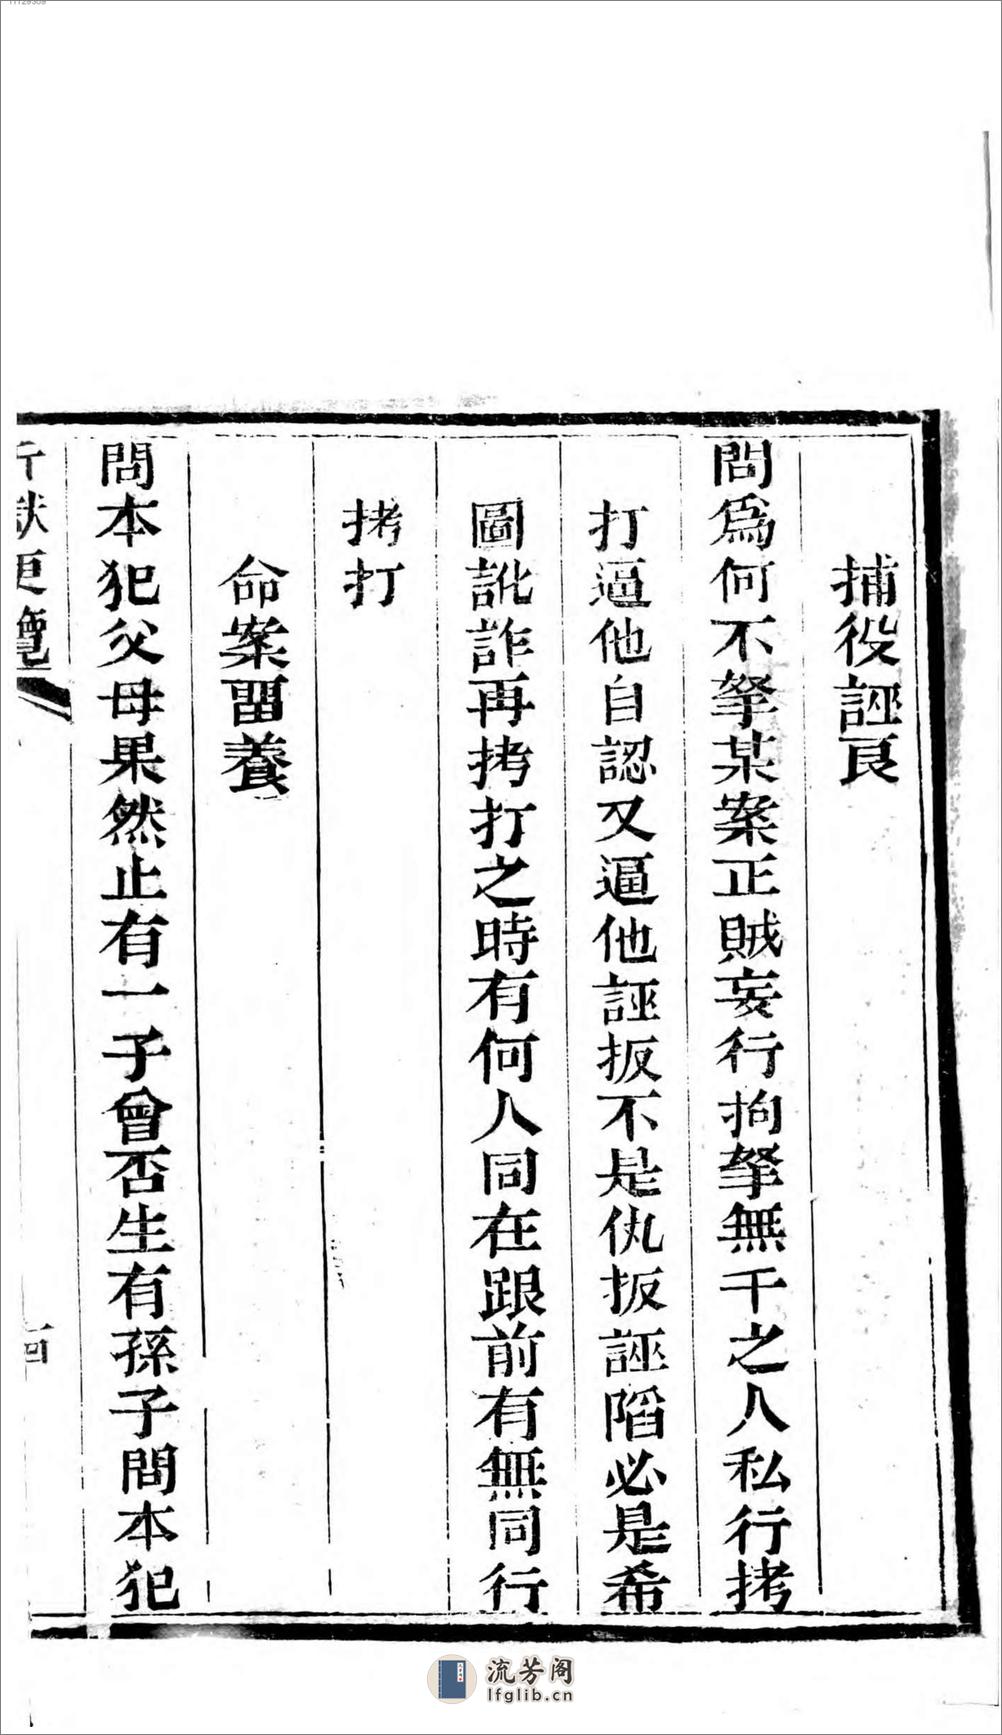 捕役誣良
問爲何不拏某案正賊妄行拘拏無干之人私行拷
打逼他自認又逼他誣扳不是仇扳誣陷必是希
圖訛詐再拷打之時有何人同在跟前有無同行
拷打
命案畱養
問本犯父母果然止有一子曾否生有孫子問本犯
四
流芳阁
lfglib.cn